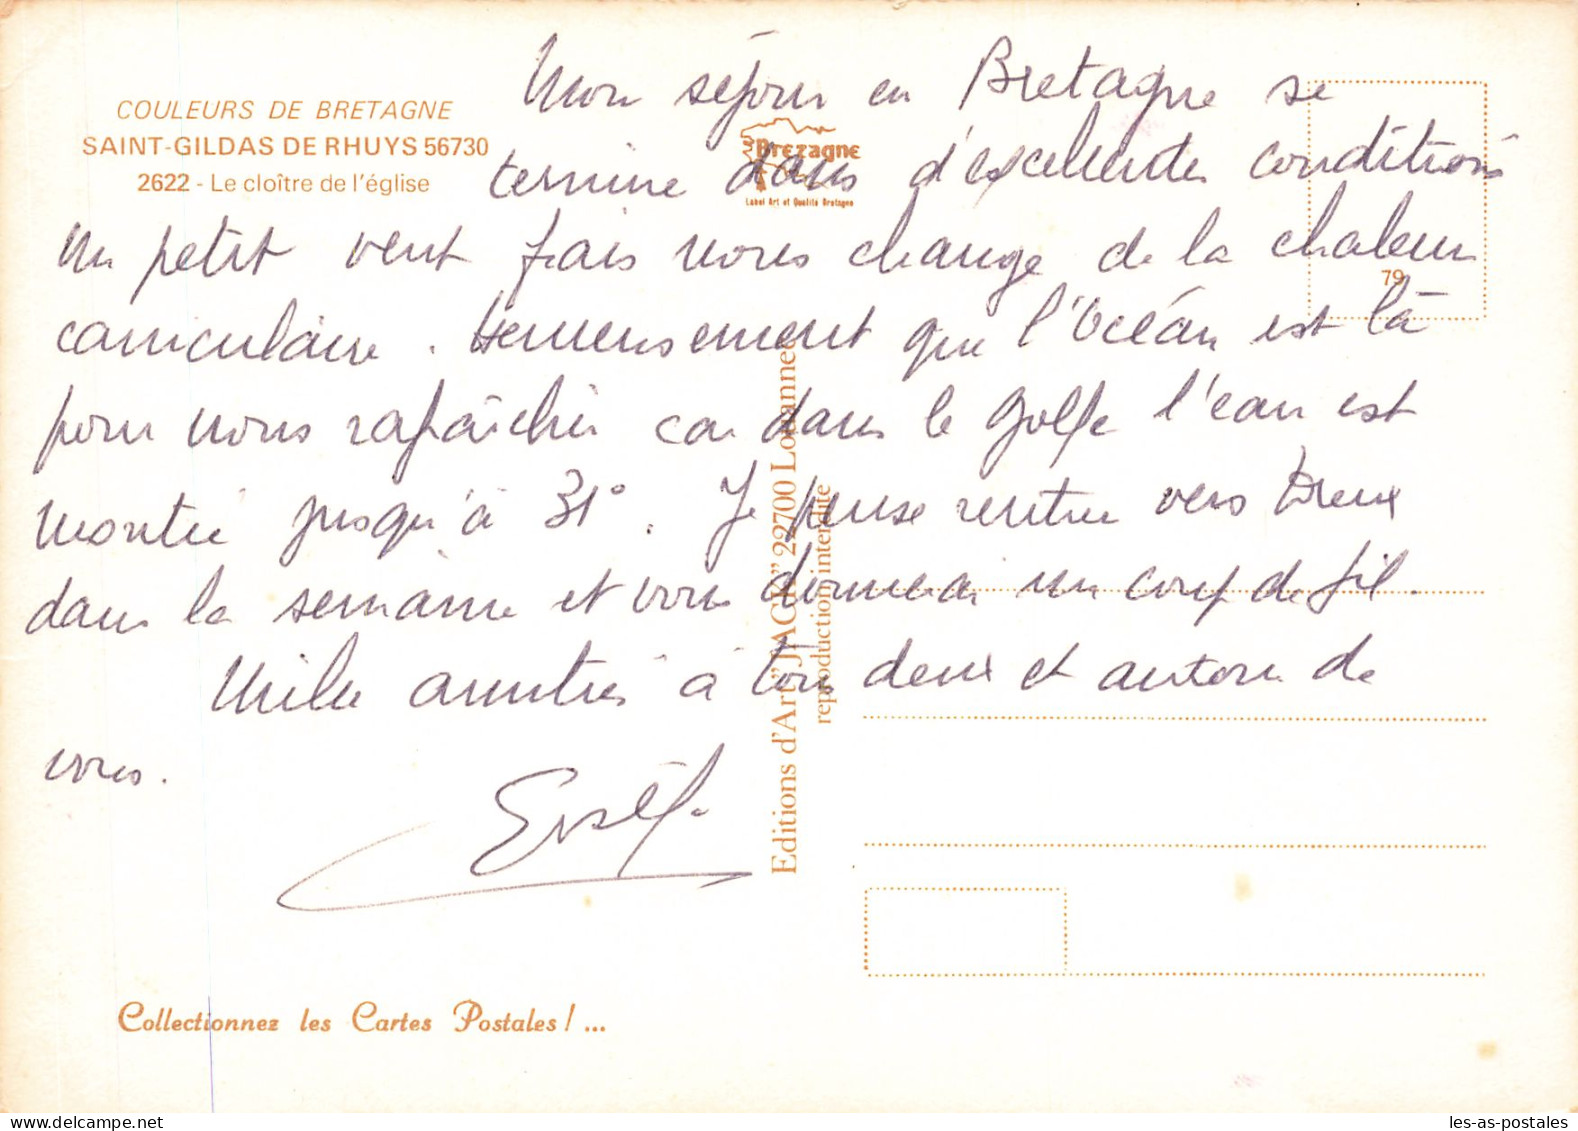 COULEURS DE BRETAGNE
SAINT-GILDAS DE RHUYS 56730
2622 - Le cloître de l'église
Brezagne
Label Art et Qualité Bretagne
79
Mon séjour en Bretagne se
termine dans d'excellentes conditions
un petit vent frais nous change de la chaleur
canniculaire. Heureusement que l'Océan est là
pour nous rafraîchir car dans le golfe l'eau est
montée jusqu'à 31°. Je pense rentrer vers Dreux
dans la semaine et vous donnerai un coup de fil.
Mille amitiés à tous deux et autour de
vous.
Editions d'Art "JACK" 22700 Louannec
reproduction interdite
Collectionnez les Cartes Postales! ...
les-as-postales